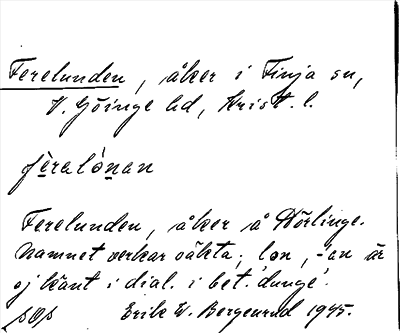 Ferelunden, åker i Finja sn,
V. Göinge hd, Krist. l.
fèralònan
Ferelunden, åker å Hörlinge.
Namnet verkar oäkta; lon, -an är
ej känt i dial. i bet. 'dunge'.
Erik W. Bergenrud 1945.